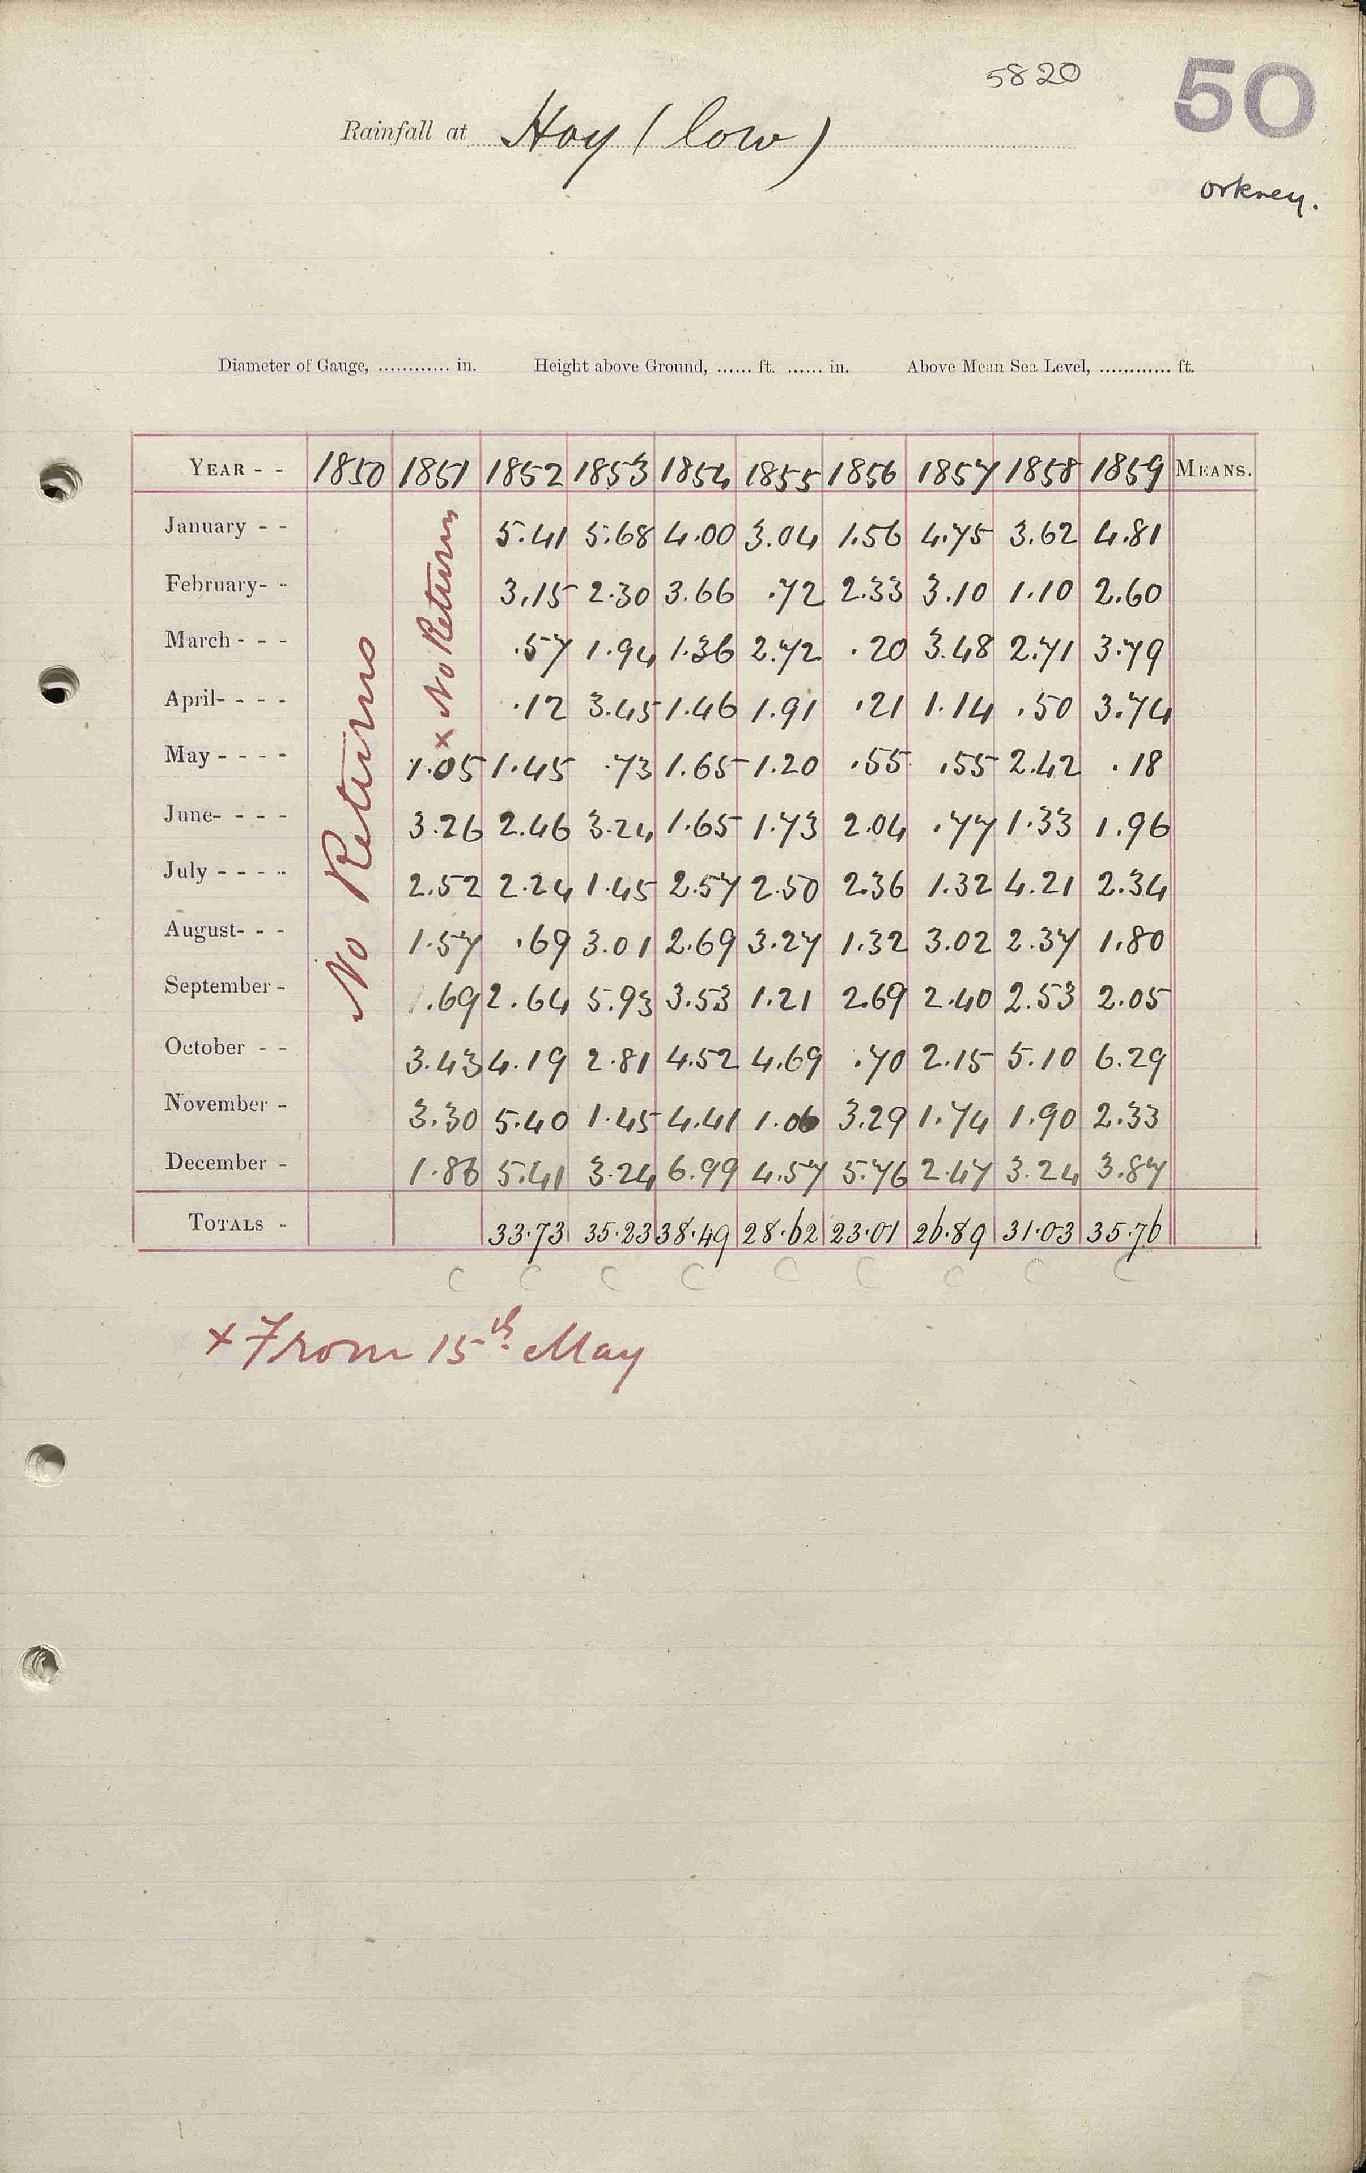 5820
50
Rainfall at Hoy (low)
Orkney.
Diameter of Gauge, ............ in. Height above Ground, ...... ft. ...... in. Above Mean Sea Level, ............ ft.
YEAR - - 1850 1851 1852 1853 1854 1855 1856 1857 1858 1859 MEANS.
No Returns
× No Return
January - - 5.41 5.68 4.00 3.04 1.56 4.75 3.62 4.81
February- - 3.15 2.30 3.66 .72 2.33 3.10 1.10 2.60
March - - - .57 1.94 1.36 2.72 .20 3.48 2.71 3.79
April- - - - .12 3.45 1.46 1.91 .21 1.14 .50 3.74
May - - - - 1.05 1.45 .73 1.65 1.20 .55 .55 2.42 .18
June- - - - 3.26 2.46 3.24 1.65 1.73 2.04 .77 1.33 1.96
July - - - - 2.52 2.24 1.45 2.57 2.50 2.36 1.32 4.21 2.34
August- - - 1.57 .69 3.01 2.69 3.27 1.32 3.02 2.37 1.80
September - 1.69 2.64 5.93 3.53 1.21 2.69 2.40 2.53 2.05
October - - 3.43 4.19 2.81 4.52 4.69 .70 2.15 5.10 6.29
November - 3.30 5.40 1.45 4.41 1.06 3.29 1.74 1.90 2.33
December - 1.86 5.41 3.24 6.99 4.57 5.76 2.47 3.24 3.87
TOTALS - 33.73 35.23 38.49 28.62 23.01 26.89 31.03 35.76
C C C C C C C C C
× From 15th May